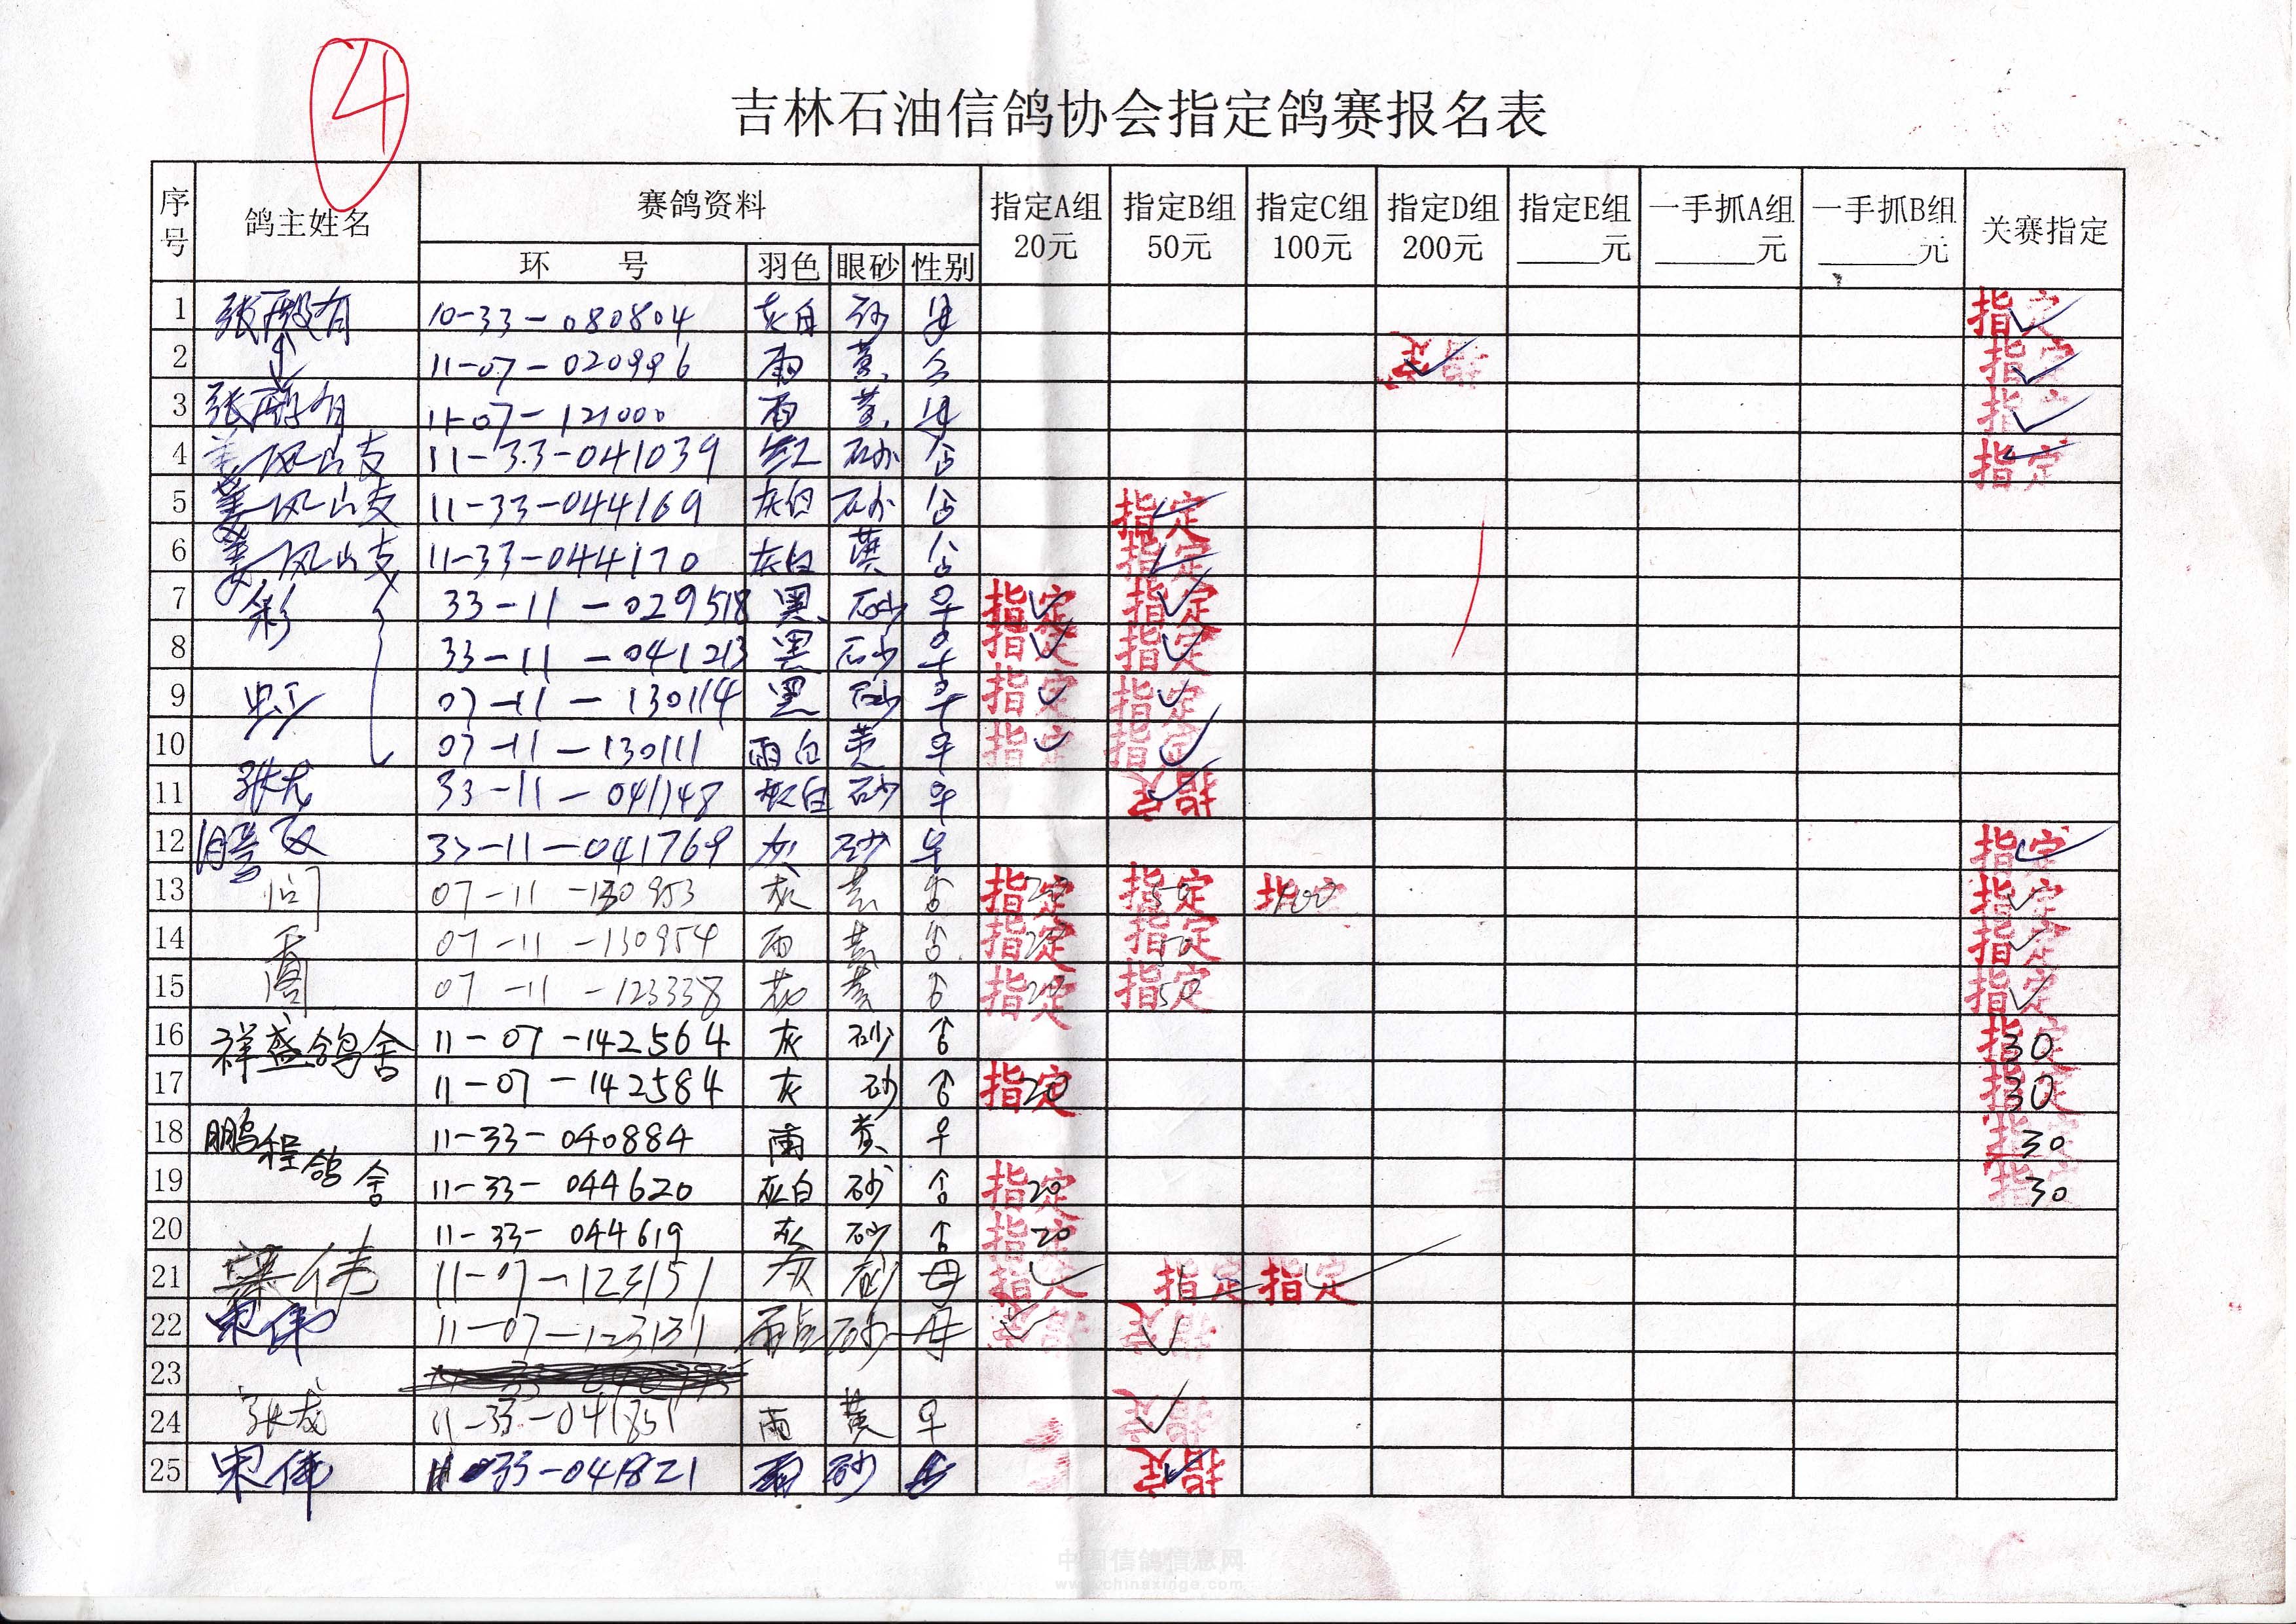 4
吉林石油信鸽协会指定鸽赛报名表
序号 鸽主姓名 赛鸽资料 指定A组 20元 指定B组 50元 指定C组 100元 指定D组 200元 指定E组 ____元 一手抓A组 ____元 一手抓B组 ____元 关赛指定
环 号 羽色 眼砂 性别
1 张殿有 10-33-080804 灰白 砂 母 指定
2 11-07-020996 雨 黄 公 指定 指定
3 张殿有 11-07-121000 雨 黄 母 指定
4 姜凤山支 11-33-041039 红 砂 公 指定
5 姜凤山支 11-33-044169 灰白 砂 公 指定
6 姜凤山支 11-33-044170 灰白 黄 公 指定
7 彩 33-11-029518 黑 砂 ♀ 指定 指定
8 33-11-041213 黑 砂 ♀ 指定 指定
9 虹 07-11-130114 黑 砂 ♀ 指定 指定
10 07-11-130111 雨白 黄 ♀ 指定 指定
11 张龙 33-11-041148 灰白 砂 ♀ 指定
12 33-11-041769 灰 砂 ♀ 指定
13 07-11-130953 灰 黄 ♂ 指定 20 指定 50 指定 100 指定
14 07-11-130954 雨 黄 ♂ 指定 20 指定 50 指定
15 07-11-123338 花 黄 ♂ 指定 20 指定 50 指定
16 祥盛鸽舍 11-07-142564 灰 砂 ♂ 指定 30
17 11-07-142584 灰 砂 ♂ 指定 20 指定 30
18 鹏程鸽舍 11-33-040884 雨 黄 ♀ 指定 30
19 11-33-044620 灰白 砂 ♂ 指定 20 指定 30
20 11-33-044619 灰 砂 ♂ 指定 20
21 伟 11-07-123151 灰 砂 母 指定 指定 指定
22 宋伟 11-07-123131 雨点 砂 母 指定 指定
23
24 张龙 11-33-041851 雨 黄 ♀ 指定
25 宋伟 11-33-041821 雨 砂 指定
中国信鸽信息网
www.chinaxinge.com